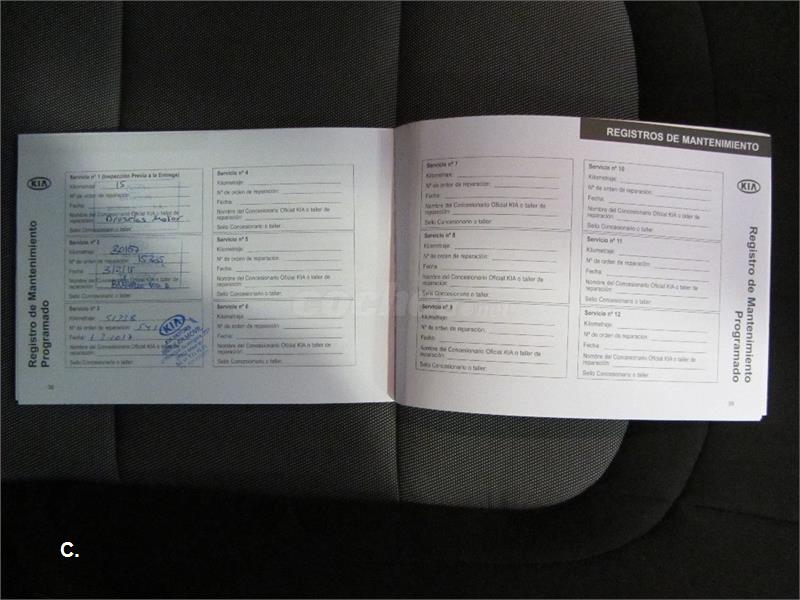 REGISTROS DE MANTENIMIENTO
KIA
Registro de Mantenimiento
Programado
Servicio nº 1 (Inspección Previa a la Entrega)
Kilometraje: 15
Nº de orden de reparación:
Fecha:
Nombre del Concesionario Oficial KIA o taller de
reparación: Motor
Sello Concesionario o taller:
Servicio nº 2
Kilometraje:
Nº de orden de reparación:
Fecha:
Nombre del Concesionario Oficial KIA o taller de
reparación:
Sello Concesionario o taller:
Servicio nº 3
Kilometraje:
Nº de orden de reparación:
Fecha:
Nombre del Concesionario Oficial KIA o taller de
reparación:
Sello Concesionario o taller:
KIA
38
Servicio nº 4
Kilometraje:
Nº de orden de reparación:
Fecha:
Nombre del Concesionario Oficial KIA o taller de
reparación:
Sello Concesionario o taller:
Servicio nº 5
Kilometraje:
Nº de orden de reparación:
Fecha:
Nombre del Concesionario Oficial KIA o taller de
reparación:
Sello Concesionario o taller:
Servicio nº 6
Kilometraje:
Nº de orden de reparación:
Fecha:
Nombre del Concesionario Oficial KIA o taller de
reparación:
Sello Concesionario o taller:
Servicio nº 7
Kilometraje:
Nº de orden de reparación:
Fecha:
Nombre del Concesionario Oficial KIA o taller de
reparación:
Sello Concesionario o taller:
Servicio nº 8
Kilometraje:
Nº de orden de reparación:
Fecha:
Nombre del Concesionario Oficial KIA o taller de
reparación:
Sello Concesionario o taller:
Servicio nº 9
Kilometraje:
Nº de orden de reparación:
Fecha:
Nombre del Concesionario Oficial KIA o taller de
reparación:
Sello Concesionario o taller:
Servicio nº 10
Kilometraje:
Nº de orden de reparación:
Fecha:
Nombre del Concesionario Oficial KIA o taller de
reparación:
Sello Concesionario o taller:
Servicio nº 11
Kilometraje:
Nº de orden de reparación:
Fecha:
Nombre del Concesionario Oficial KIA o taller de
reparación:
Sello Concesionario o taller:
Servicio nº 12
Kilometraje:
Nº de orden de reparación:
Fecha:
Nombre del Concesionario Oficial KIA o taller de
reparación:
Sello Concesionario o taller:
KIA
Registro de Mantenimiento
Programado
39
C.